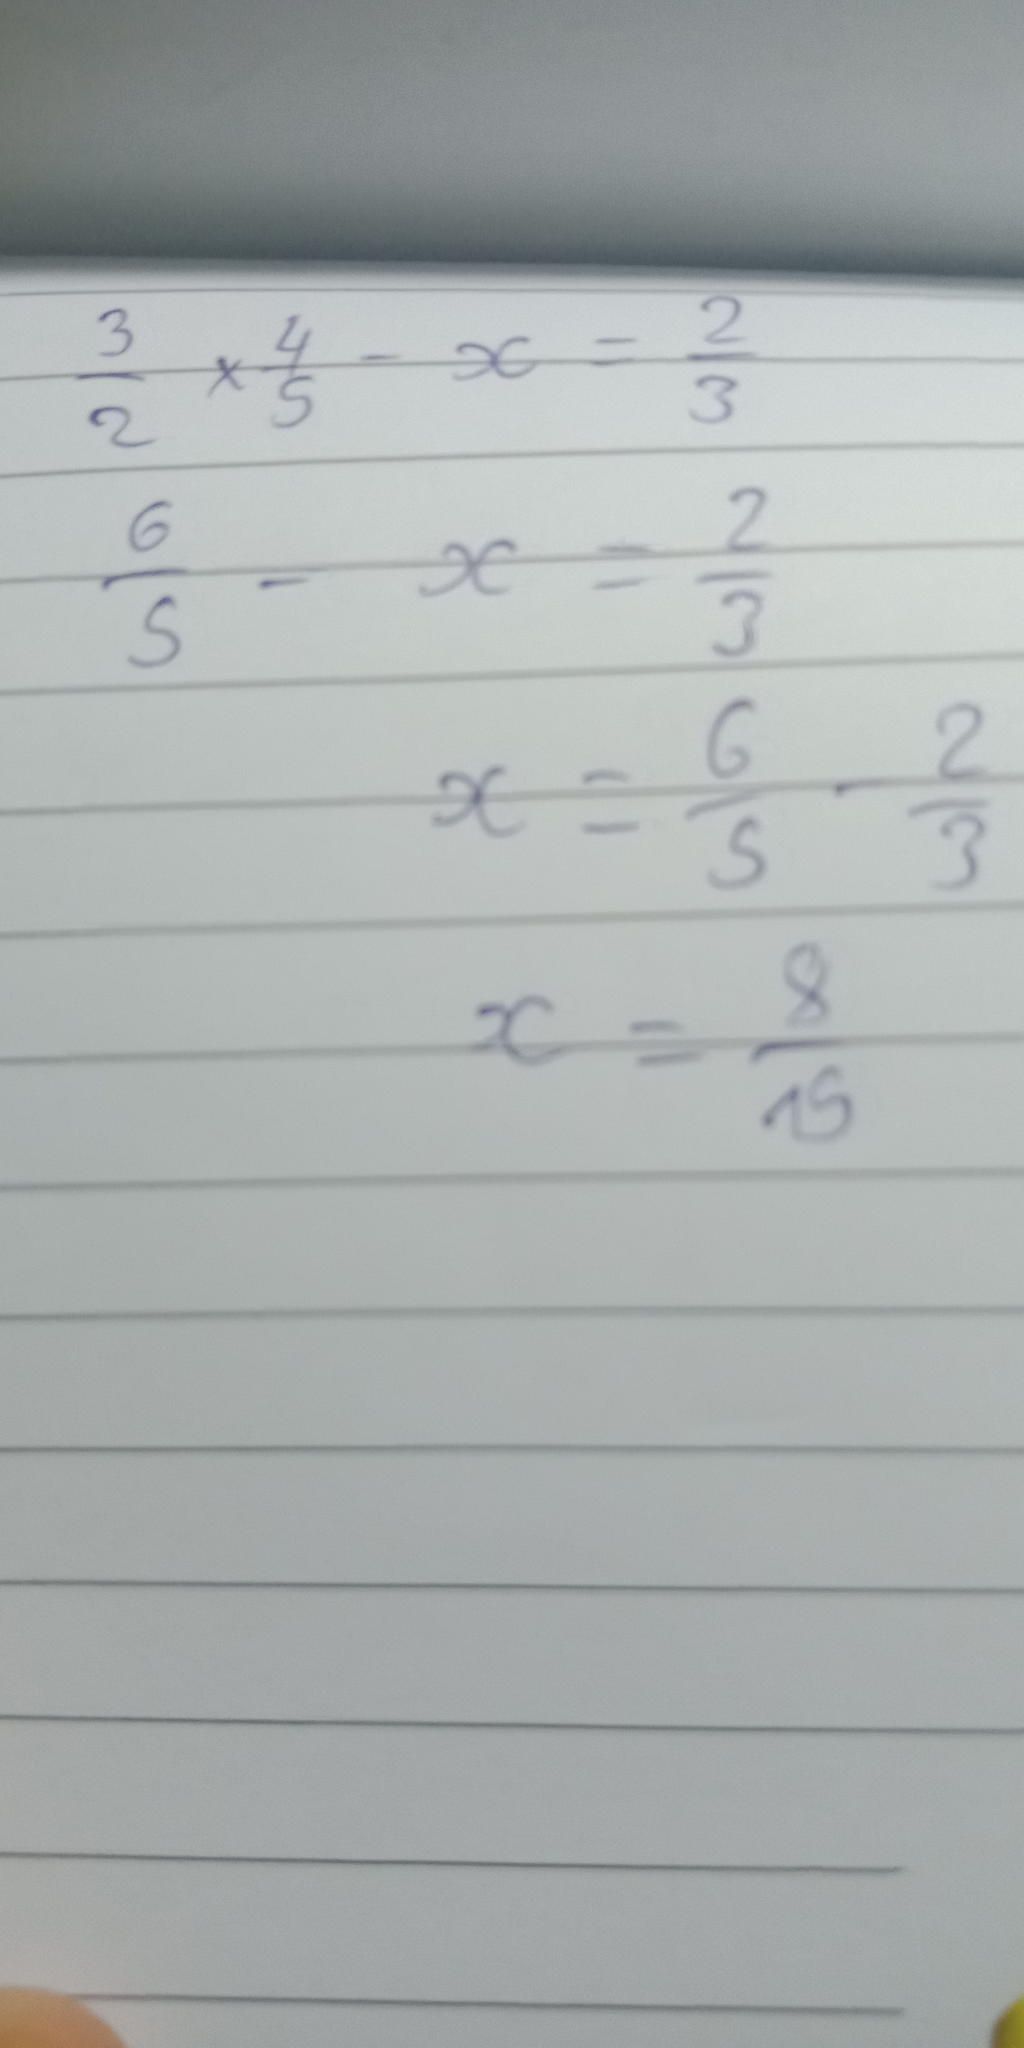 3/2 × 4/5 - x = 2/3
6/5 - x = 2/3
x = 6/5 - 2/3
x = 8/15